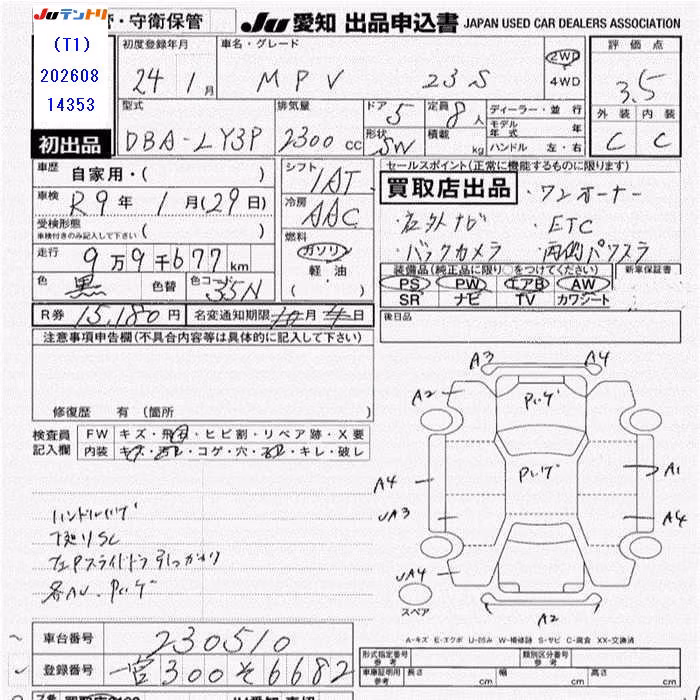 Juテントリ
・守衛保管
JU 愛知 出品申込書 JAPAN USED CAR DEALERS ASSOCIATION
(T1)
202608
14353
初出品
初度登録年月
24年 1月
車名・グレード
MPV 23S
2WD
4WD
評価点
3.5
外装 内装
C C
型式
DBA-LY3P
排気量
2300cc
ドア
5
形状
SW
定員
8人
積載 kg
ディーラー・並行
モデル年式 年
ハンドル 左・右
車歴 自家用・( )
車検
R9年 1月(29日)
受検形態
車検付きのみ記入して下さい ( )
走行
9万9千677km
色
黒
色替
色コード
35N
シフト
IAT
冷房
AAC
燃料
ガソリン
軽油
( )
セールスポイント(正常に機能するものに限ります)
買取店出品 ・ワンオーナー
・社外ナビ ・ETC
・バックカメラ ・両側パワスラ
装備品(純正品に限り○をつけてください)
PS PW エアB AW
SR ナビ TV カワシート
新車保証書
後日品
R券 15,180円 名変通知期限 月 日
注意事項申告欄(不具合内容等は具体的に記入して下さい)
修復歴 有 (箇所 )
検査員記入欄
FW キズ・飛石・ヒビ割・リペア跡・X要
内装 キズ・汚れ・コゲ・穴・・キレ・破レ
下廻りSC
A3 A4
A2
A4
UA3
UA4
A1
A4
A2
スペア
A-キズ E-エクボ U-凹み W-補修跡 S-サビ C-腐食 XX-交換済
車台番号
230510
登録番号
300 そ 6682
形式指定番号 参考
類別区分番号 参考
車庫証明用 参考 長さ 幅 高さ